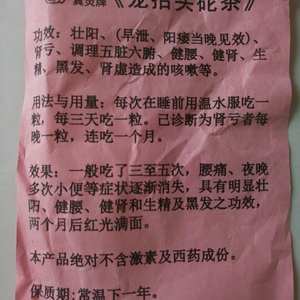 功效：壮阳、（早泄、阳痿当晚见效）、
肾亏、调理五脏六腑、健腰、健肾、生
精、黑发、肾虚造成的咳嗽等。
用法与用量：每次在睡前用温水服吃一
粒，每三天吃一粒。已诊断为肾亏者每
晚一粒，连吃一个月。
效果：一般吃了三至五次，腰痛、夜晚
多次小便等症状逐渐消失，具有明显壮
阳、健腰、健肾和生精及黑发之功效，
两个月后红光满面。
本产品绝对不含激素及西药成份。
保质期：常温下一年。